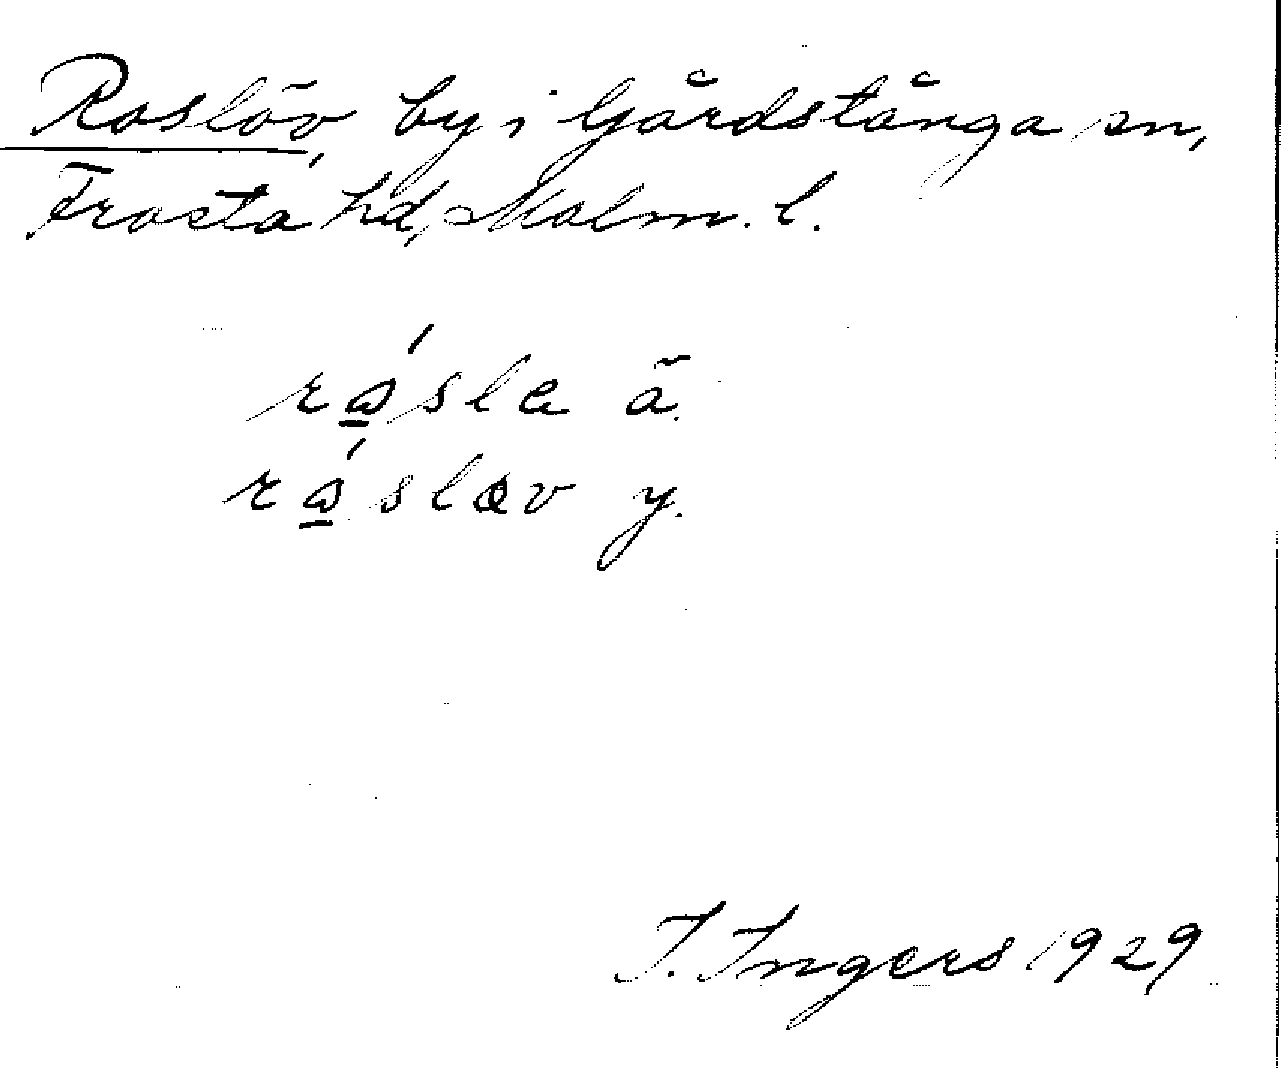 Roslöv, by i Gårdstånga sn,
Frosta hd, Malm. l.
rά̱sle ä.
rά̱sləv y.
I. Ingers 1929